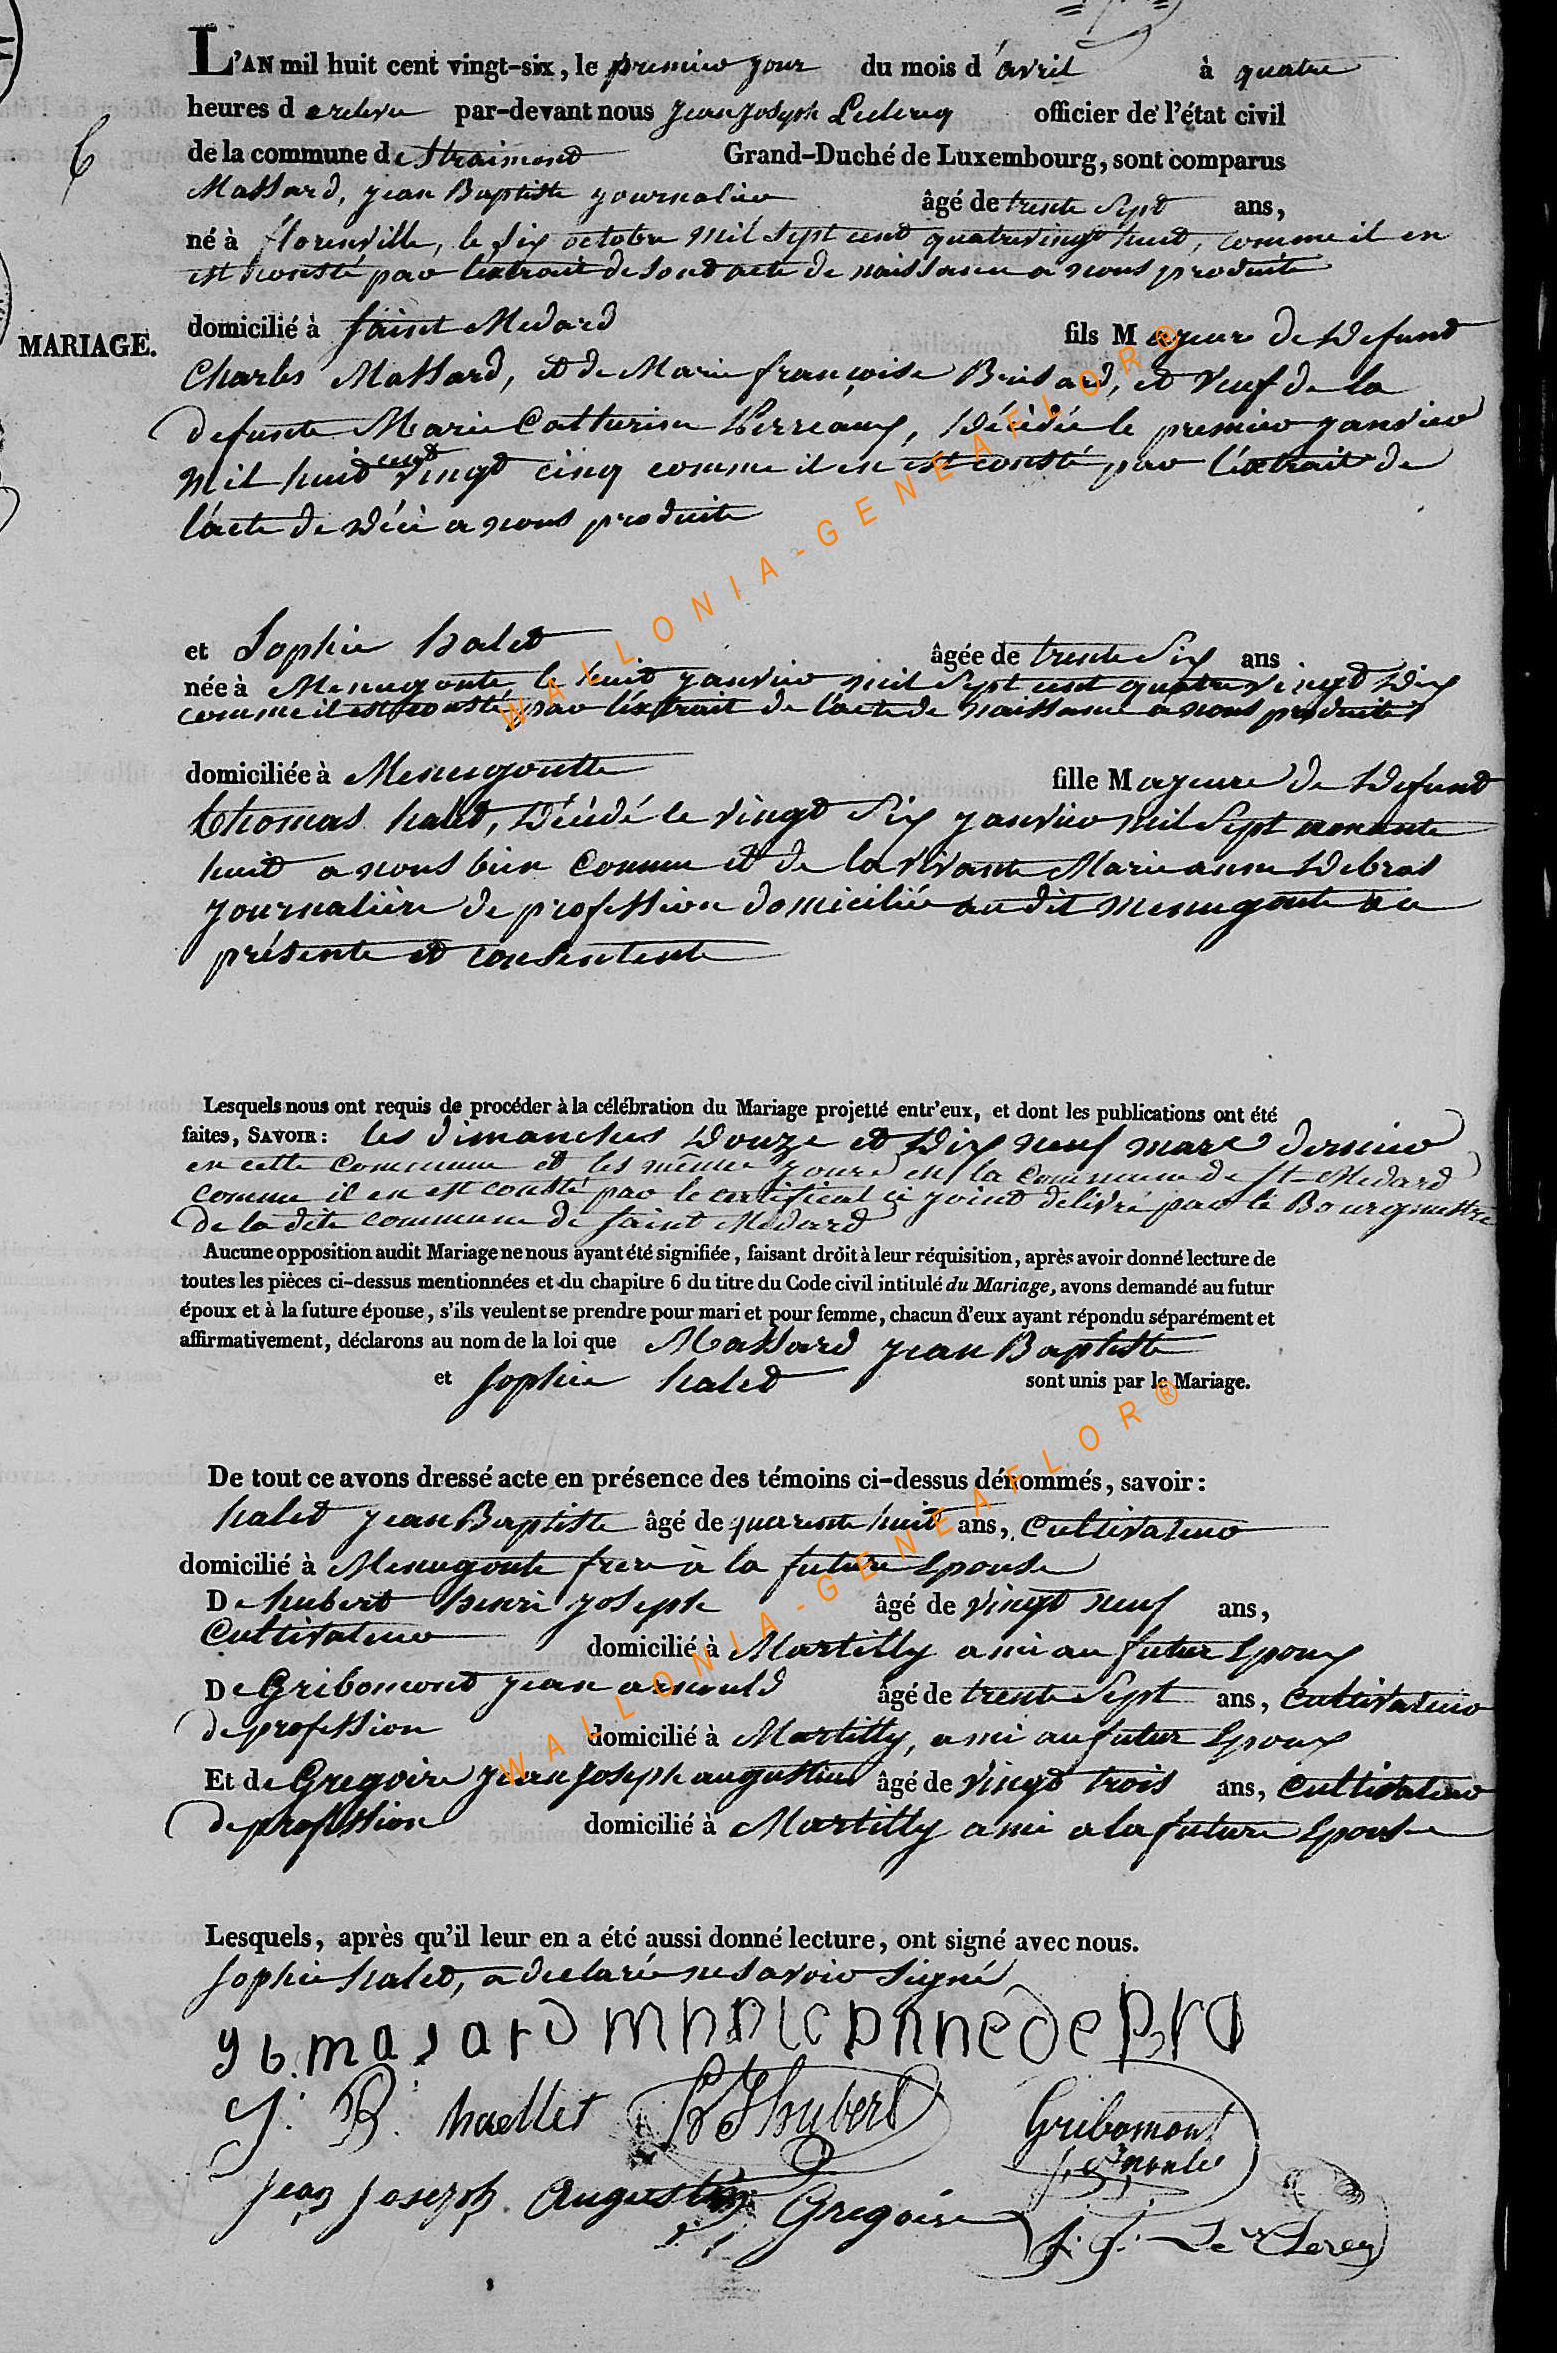 L'AN mil huit cent vingt-six, le premier jour du mois d'avril à quatre
heures de relevee par-devant nous Jean Joseph Leclercq officier de l'état civil
de la commune de Straimont Grand-Duché de Luxembourg, sont comparus
6
Massard, jean Baptiste journalier âgé de trente Sept ans,
né à florenville, le Six octobre mil Sept cent quatrevingt huit, comme il en
est consté par l'extrait de Sond acte de naissance a nous produite
MARIAGE.
domicilié à Saint Medard fils Majeur de Defund
Charles Massard, et de Marie françoise Brisard, et veuf de la
defunte Marie Catherine Pierreaux, Décédée le premier janvier
mil huid cent vingt cinq comme il en est consté par l'extrait de
l'acte de Décè a nous produite
et Sophie halet âgée de trente Six ans
née à Menugoute le huit janvier mil Sept cent quatre vingt Dix
comme il est consté par l'extrait de l'acte de naissance a nous produite
domiciliée à Menugoutte fille Majeure de Defund
thomas halet, Décédé le vingt Six janvier mil Sept nonante
huit a nous bien Connu et de la vivante Marie anne Debras
journalière de profession domiciliée au dit menugoute
présente et consentente
Lesquels nous ont requis de procéder à la célébration du Mariage projetté entr'eux, et dont les publications ont été
faites, SAVOIR: les dimanches Douze et Dix neuf mars dernier
en cette Commune et les même jours en la Commune de St Medard
comme il en est consté par le certificat ci joint delivré par le Bourgmettre
de la dite commune de Saint Médard
Aucune opposition audit Mariage ne nous ayant été signifiée, faisant droit à leur réquisition, après avoir donné lecture de
toutes les pièces ci-dessus mentionnées et du chapitre 6 du titre du Code civil intitulé du Mariage, avons demandé au futur
époux et à la future épouse, s'ils veulent se prendre pour mari et pour femme, chacun d'eux ayant répondu séparément et
affirmativement, déclarons au nom de la loi que Massard jean Baptiste
et Sophie halet sont unis par le Mariage.
De tout ce avons dressé acte en présence des témoins ci-dessus dénommés, savoir:
halet jean Baptiste âgé de quarente huit ans, Cultivateur
domicilié à Menugoute frere à la future Epouse
De hubert henri joseph âgé de vingt neuf ans,
Cultivateur domicilié à Martilly ami au futur Epoux
De Gribomont jean arnould âgé de trente Sept ans, Cultivateur
de profession domicilié à Martilly, ami au futur Epoux
Et de Gregoire jean Joseph augustin âgé de vingt trois ans, Cultivateur
de profession domicilié à Martilly ami a la future Epouse
Lesquels, après qu'il leur en a été aussi donné lecture, ont signé avec nous.
Sophie halet, a declaré ne Savoir Signé
masard
J. B. haellet H J hubert Gribomont
Jean Joseph Augustin Gregoire
J. J. Le Clercq
WALLONIA-GENEAFLOR®
WALLONIA-GENEAFLOR®